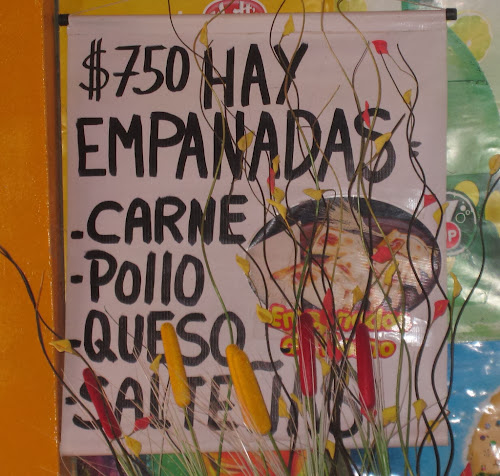 $750 HAY
EMPANADAS
-CARNE
-Pollo
-QUESO